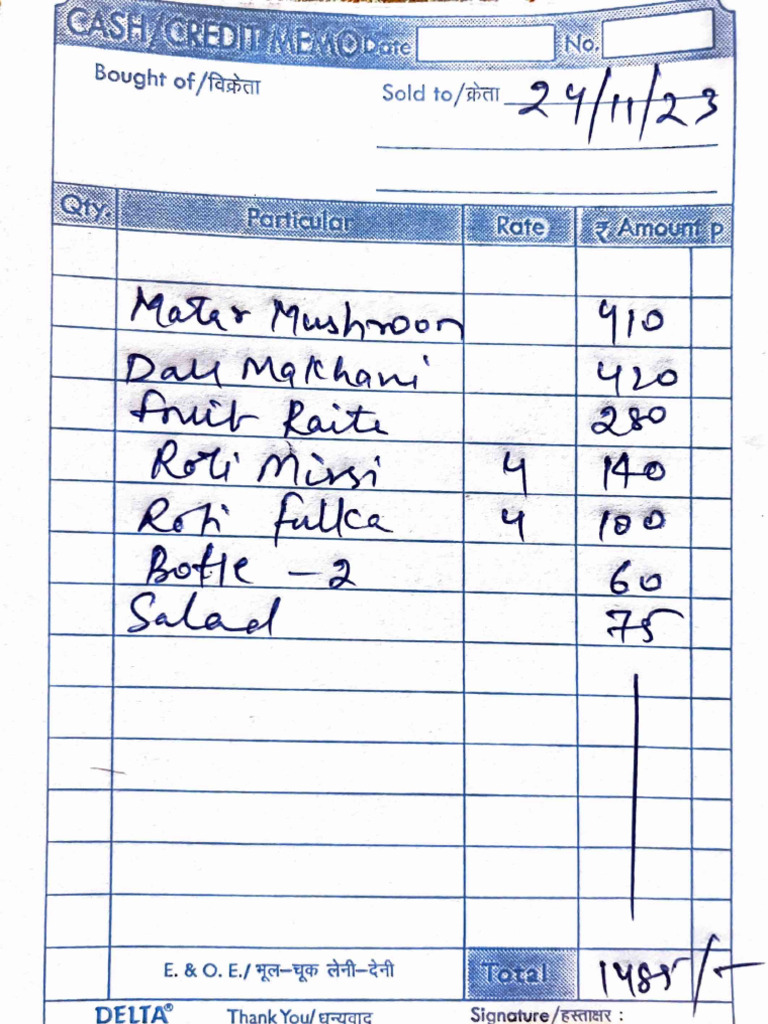 CASH/CREDIT MEMO Date No.
Bought of/विक्रेता
Sold to/क्रेता 24/11/23
Qty. Particular Rate ₹ Amount P
Matar Mushroon 410
Dall Makhani 420
fruit Raite 280
Roti Missi 4 140
Roti fulka 4 100
Botle - 2 60
Salad 75
E. & O. E./ भूल-चूक लेनी-देनी Total 1485/-
DELTA® Thank You/ धन्यवाद Signature/हस्ताक्षर :